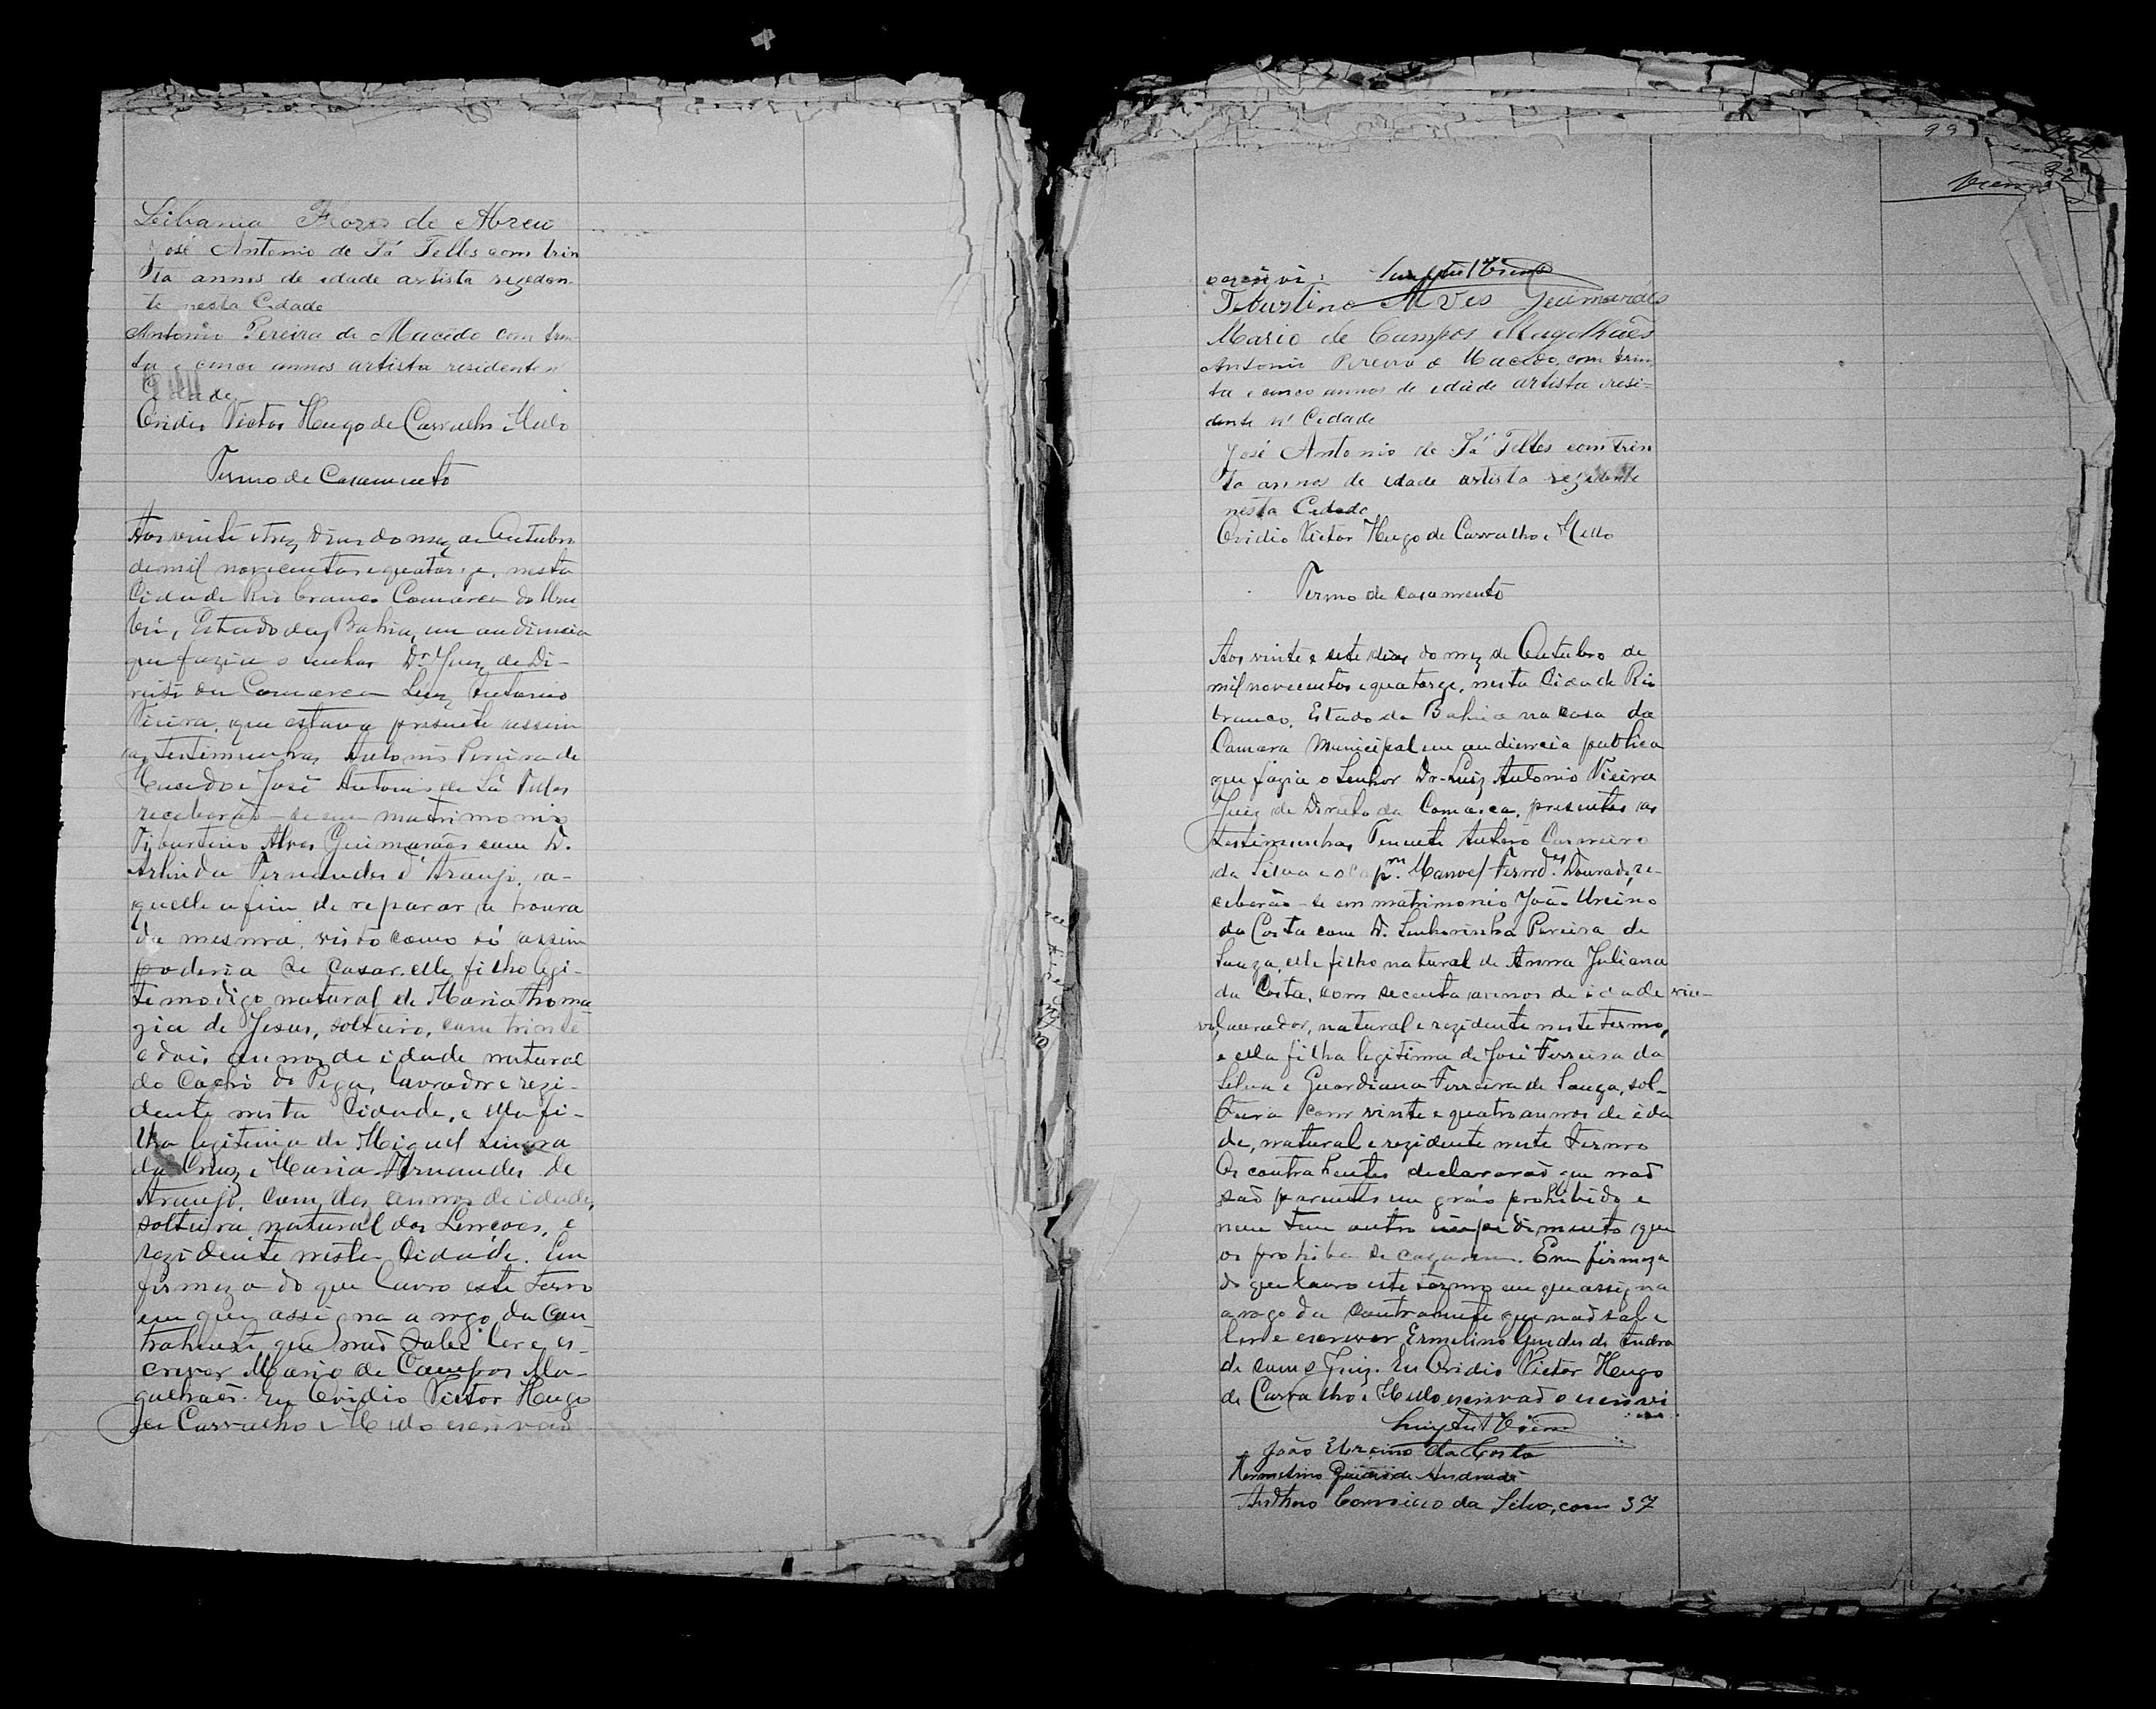 Libania Flores de Abreu
José Antonio de Sá Telles com trin
ta annos de idade artista rezeden
te nesta Cidade
Antonio Pereira de Macêdo com trin
ta e cinco annos artista residente n'
Cidade
Ovidio Victor Hugo de Carvalho e Mello
Termo de Casamento
Aos vinte e trez dias do mez de Outubro
de mil novecentos e quatorze, nesta
Cidade Rio branco Comarca do Uru
bú, Estado da Bahia, em audiencia
que fazia o senhor Dr. Juiz de Di-
reito da Comarca Luiz Antonio
Vieira, que estava presente assim
as testimunhas Antonio Pereira de
Macedo e José Antonio de Sá Telles
receberão-se em matrimonio
Tiburtino Alves Guimarães com D.
Arlinda Fernandes d'Araujo, a-
quelle afim de reparar a honra
da mesma, visto como só assim
poderia se casar. elle filho legi-
timo digo natural de Maria Thoma
zia de Jesus, solteiro, com trinta
e dois annos de idade natural
do Cochó do Pega, lavrador e rezi-
dente nesta Cidade, e ella fi-
lha legitima de Miguel
da Cruz e Maria Fernandes de
Araujo, com dez annos de idade,
solteira natural dos Lencoes, e
rezidente nesta Cidade. Em
firmeza do que lavro este termo
em que assigna a rogo da Con
trahente que não sabe ler e es-
crever Mario de Campos Ma-
galhães. Eu Ovidio Victor Hugo
de Carvalho e Mello escrivão
99
escrevi.
Tiburtino Alves Guimarães
Mario de Campos Magalhães
Antonio Pereira de Macêdo, com trin
ta e cinco annos de idade artista resi-
dente n' Cidade
José Antonio de Sá Telles com trin
ta annos de idade artista rezidente
nesta Cidade
Ovidio Victor Hugo de Carvalho e Mello
Termo de casamento
Aos vinte e sete dias do mez de Outubro de
mil novecentos e quatorze, nesta Cidade Rio
branco, Estado da Bahia na casa da
Camara Municipal em audiencia publica
que fazia o Senhor Dr. Luiz Antonio Vieira
Juiz de Direito da Comarca, presentes as
testimunhas Tenente Antero Carneiro
da Silva e o Capm. Manoel Fernds. Dourado, re-
ceberão-se em matrimonio João Urcino
da Costa com D. Senhorinha Pereira de
Souza, elle filho natural de Anna Juliana
da Costa, com secenta annos de idade viu-
vo, lavrador, natural e rezidente neste termo,
e ella filha legitima de José Ferreira da
Silva e Guardiana Ferreira de Souza, sol-
teira com vinte e quatro annos de ida
de, natural e rezidente neste termo
Os contrahentes declararão que não
são parentes em gráo prohibido e
nem tem outro impedimento que
os prohiba de cazarem. Em firmeza
do que lavro este termo em que assigna
a rogo da contrahente que não sabe
ler e escrever Ermelino Guedes de Andra
de com o Juiz. Eu Ovidio Victor Hugo
de Carvalho e Mello escrivão o escrevi
Luiz Ant Vieira
João Urcino da Costa
Hermelino Guedes de Andrade
Anthero Carneiro da Silva, com 37